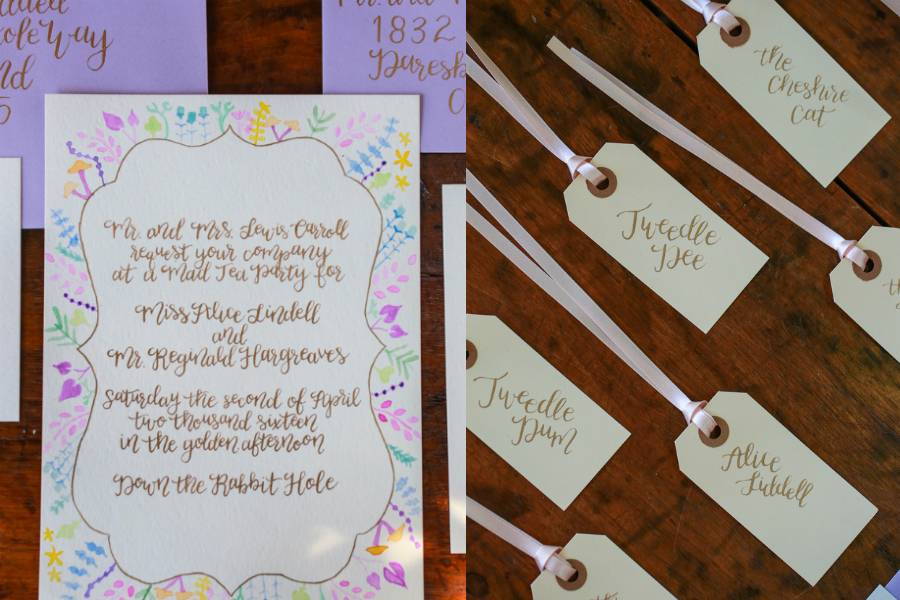 Way
1832
Mr. and Mrs. Lewis Carroll
request your company
at a Mad Tea Party for
Miss Alice Lindell
and
Mr. Reginald Hargreaves
Saturday the second of April
two thousand sixteen
in the golden afternoon
Down the Rabbit Hole
the
Cheshire
Cat
Tweedle
Dee
Tweedle
Dum
Alice
Liddell